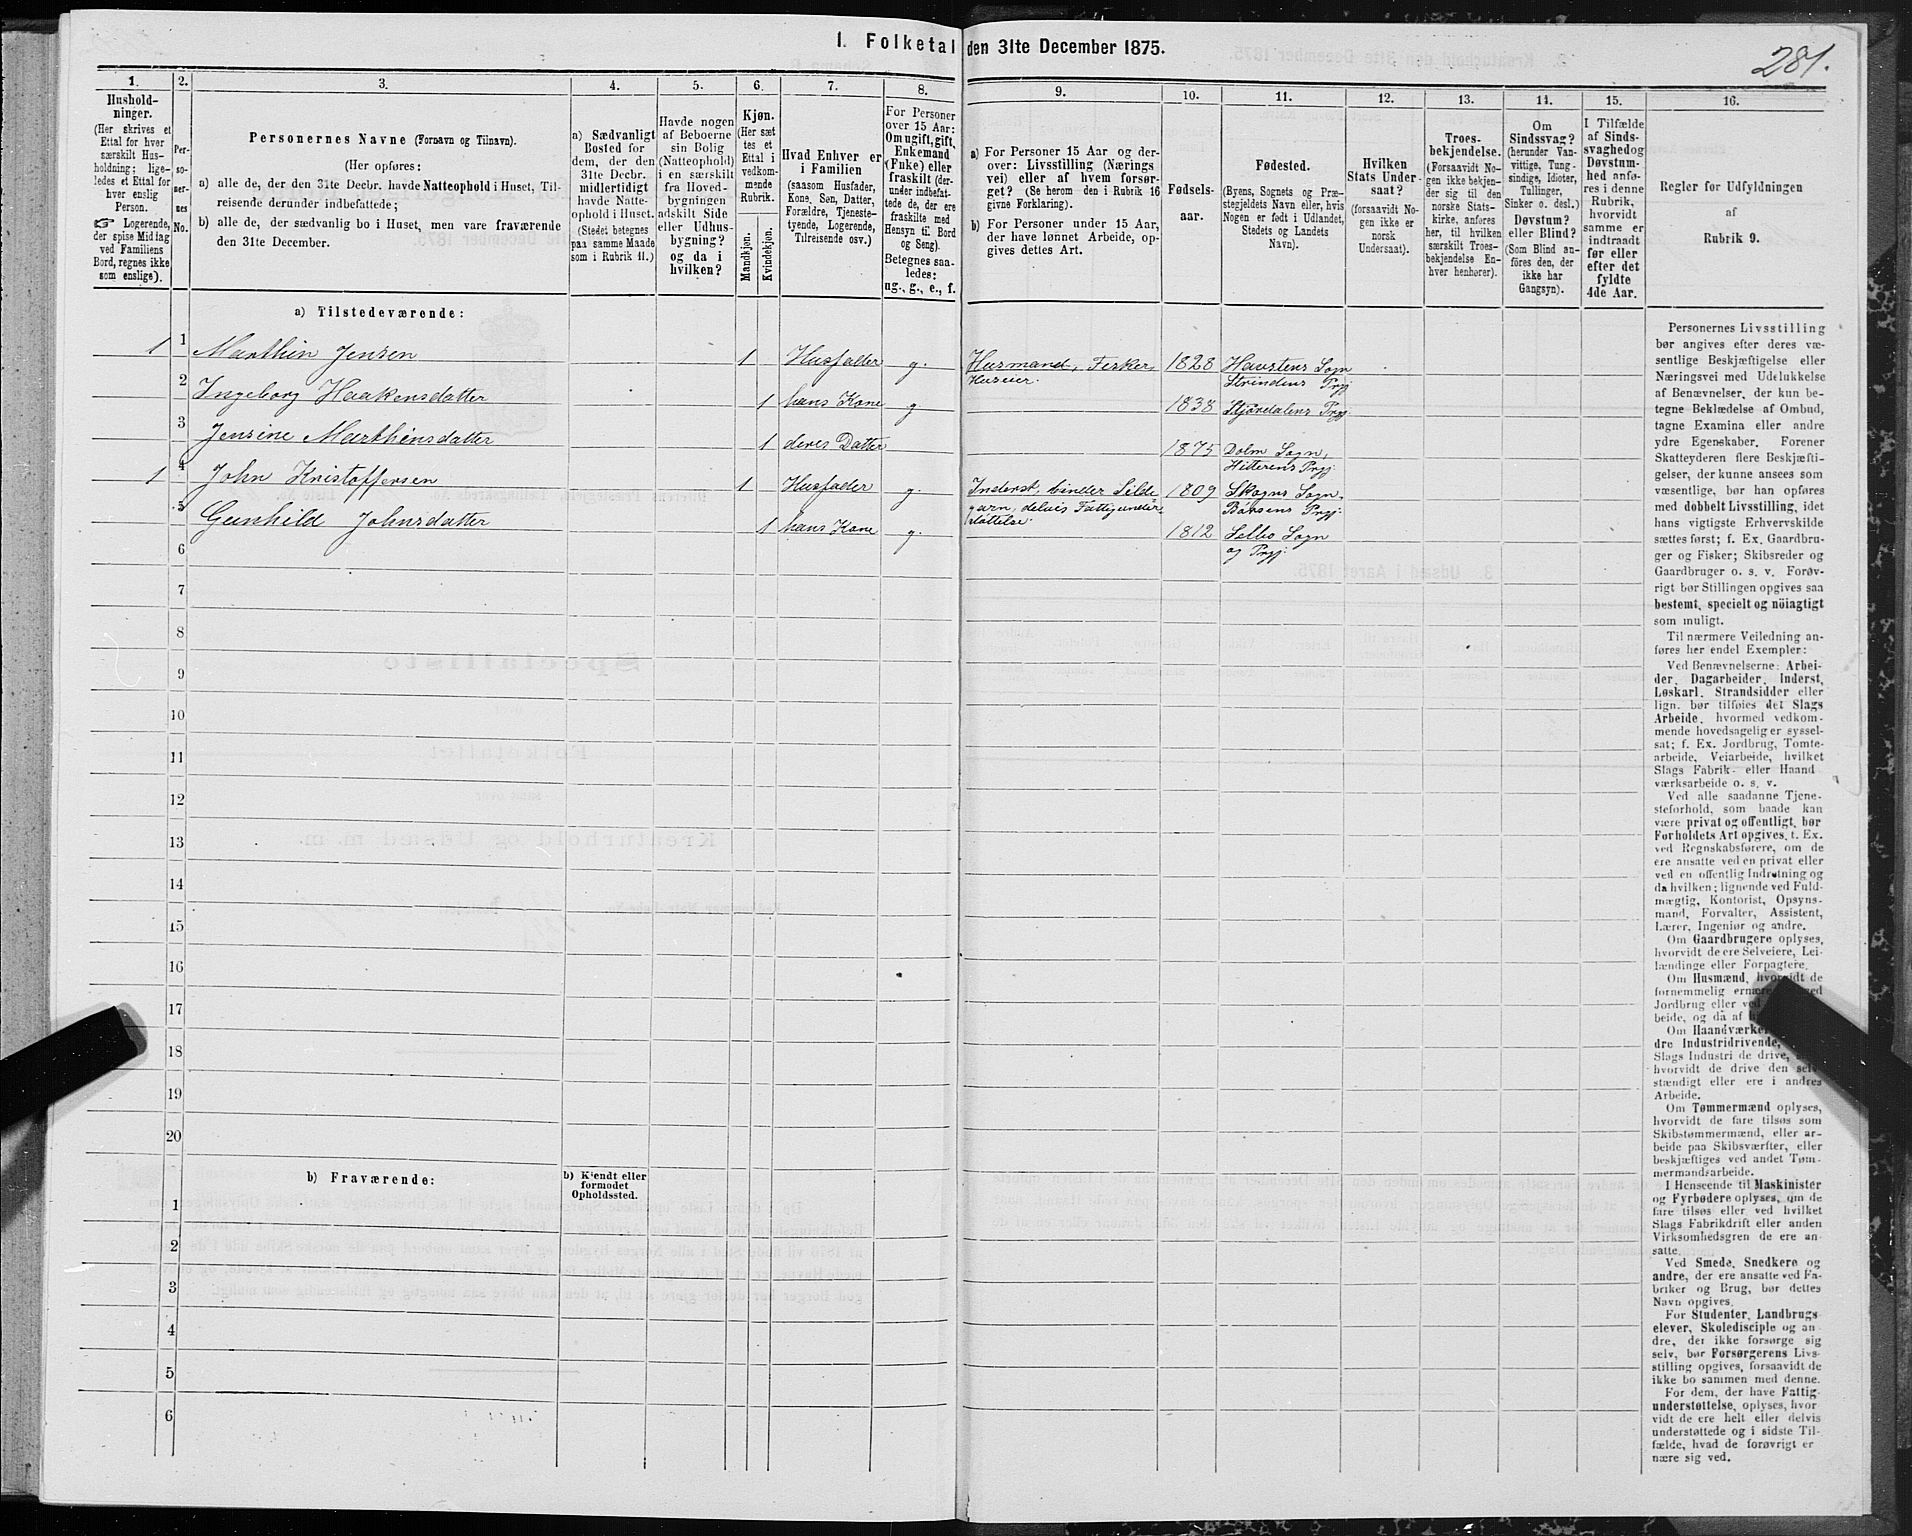 1. Folketal den 31te December 1875.
281.
1.
Hushold-
ninger.
(Her skrives et
Ettal for hver
særskilt Hus-
holdning; lige-
ledes et Ettal for
hver enslig
Person.
☞ Logerende,
der spise Middag
ved Familiens
Bord, regnes ikke
som enslige).
2.
Per-
so-
ner-
nes
No.
3.
Personernes Navne (Fornavn og Tilnavn).
(Her opføres:
a) alle de, der den 31te Decbr. havde Natteophold i Huset, Til-
reisende derunder indbefattede;
b) alle de, der sædvanlig bo i Huset, men vare fraværende
den 31te December.
4.
a) Sædvanligt
Bosted for
dem, der den
31te Decbr.
midlertidigt
havde Natte-
ophold i Huset.
(Stedet betegnes
paa samme Maade
som i Rubrik 11.)
5.
Havde nogen
af Beboerne
sin Bolig
(Natteophold)
i en særskilt
fra Hoved-
bygningen
adskilt Side
eller Udhus-
bygning?
og da i
hvilken?
6.
Kjøn.
(Her sæt
tes et
Ettal i
vedkom-
mende
Rubrik.
Mandkjøn.
Kvindekjøn.
7.
Hvad Enhver er
i Familien
(saasom Husfader,
Kone, Søn, Datter,
Forældre, Tjeneste-
tyende, Logerende,
Tilreisende osv.)
8.
For Personer
over 15 Aar:
Om ugift, gift,
Enkemand
(Enke) eller
fraskilt (der-
under indbefat-
tede de, der ere
fraskilte med
Hensyn til Bord
og Seng).
Betegnes saa-
ledes:
ug., g., e., f.
9.
a) For Personer 15 Aar og der-
over: Livsstilling (Nærings
vei) eller af hvem forsør-
get? (Se herom den i Rubrik 16
givne Forklaring).
b) For Personer under 15 Aar,
der have lønnet Arbeide, op-
gives dettes Art.
10.
Fødsels-
aar.
11.
Fødested.
(Byens, Sognets og Præ-
stegjeldets Navn eller, hvis
Nogen er født i Udlandet,
Stedets og Landets
Navn).
12.
Hvilken
Stats Under-
saat?
(forsaavidt No-
gen ikke er
norsk
Undersaat).
13.
Troes-
bekjendelse.
(Forsaavidt No-
gen ikke bekjen-
der sig til den
norske Stats-
kirke, anføres
her, til hvilken
særskilt Troes-
bekjendelse En-
hver henhører).
14.
Om
Sindssvag?
(herunder Van-
vittige, Tung-
sindige, Idioter,
Tullinger,
Sinker o. desl.)
Døvstum?
eller Blind?
(Som Blind an-
føres den, der
ikke har
Gangsyn).
15.
I Tilfælde
af Sinds-
svaghed og
Døvstum-
hed anfø-
res i denne
Rubrik,
hvorvidt
samme er
indtraadt
før eller
efter det
fyldte
4de Aar.
16.
Regler for Udfyldningen
af
Rubrik 9.
a) Tilstedeværende:
1 1 Marthin Jensen 1 Husfader g. Husmand, Fisker, 1828 Haustens Sogn
Huseier. Strindens Prgj
2 Ingeborg Haakensdatter 1 hans Kone g 1838 Stjørdalens Prgj
3 Jensine Marthinsdatter 1 deres Datter 1875 Dolm Sogn,
Hitterens Prgj.
1 4 John Kristoffersen 1 Husfader g. Inderst, binder Silde 1809 Skogns Sogn,
garn, delvis Fattigunder Børsens Prgj:
støttelse.
5 Gunhild Johnsdatter 1 hans Kone g. 1812 Selbo Sogn
og Prgj:
6
7
8
9
10
11
12
13
14
15
16
17
18
19
20
b) Fraværende:
b) Kjendt eller
formodet
Opholdssted.
1
2
3
4
5
6
Personernes Livsstilling
bør angives efter deres væ-
sentlige Beskjæftigelse eller
Næringsvei med Udelukkelse
af Benævnelser, der kun be-
tegne Beklædelse af Ombud,
tagne Examina eller andre
ydre Egenskaber. Forener
Skatteyderen flere Beskjæfti-
gelser, der kunne ansees som
væsentlige, bør han opføres
med dobbelt Livsstilling, idet
hans vigtigste Erhvervskilde
sættes først; f. Ex. Gaardbru-
ger og Fisker; Skibsreder og
Gaardbruger o. s. v. Forøv-
rigt bør Stillingen opgives saa
bestemt, specielt og nöiagtigt
som muligt.
Til nærmere Veiledning an-
føres her endel Exempler:
Ved Benævnelserne: Arbei-
der, Dagarbeider, Inderst,
Løskarl, Strandsidder eller
lign. bør tilføies det Slags
Arbeide, hvormed vedkom-
mende hovedsagelig er syssel-
sat; f. Ex. Jordbrug, Tomte-
arbeide, Veiarbeide, hvilket
Slags Fabrik- eller Haand
værksarbeide o. s. v.
Ved alle saadanne Tjene-
steforhold, som baade kan
være privat og offentligt, bør
Forholdets Art opgives, t. Ex.
ved Regnskabsførere, om de
ere ansatte ved en privat eller
ved en offentlig Indretning og
da hvilken; lignende ved Fuld-
mægtig, Kontorist, Opsyns-
mand, Forvalter, Assistent,
Lærer, Ingeniør og andre.
Om Gaardbrugere oplyses,
hvorvidt de ere Selveiere, Lei-
lændinge eller Forpagtere.
Om Husmænd, hvorvidt de
fornemmelig ernære
Jordbrug eller ved
beide, og da af
Om Haandværkere
dre Industridrivende,
Slags Industri de drive,
hvorvidt de drive den selv-
stændigt eller ere i andres
Arbeide.
Om Tømmermænd oplyses,
hvorvidt de fare tilsøs som
Skibstømmermænd, eller ar-
beide paa Skibsværfter, eller
beskjæftiges ved andet Tøm-
mermandsarbeide.
I Henseende til Maskinister
og Fyrbødere oplyses, om de
fare tilsøs eller ved hvilket
Slags Fabrikdrift eller anden
Virksomhedsgren de ere an-
satte.
Ved Smede, Snedkere og
andre, der ere ansatte ved Fa-
briker og Brug, bør dettes
Navn opgives.
For Studenter, Landbrugs
elever, Skoledisciple og an
dre, der ikke forsørge sig
selv, bør Forsørgerens Livs-
stilling opgives, forsaavidt de
ikke bo sammen med denne.
For dem, der have Fattig-
understøttelse, oplyses, hvor
vidt de ere helt eller delvis
understøttede og i sidste Til-
fælde, hvad de forøvrigt er
nære sig ved.